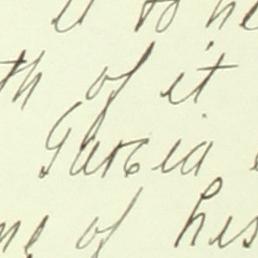 it to he
th of it
Garcia
me of his